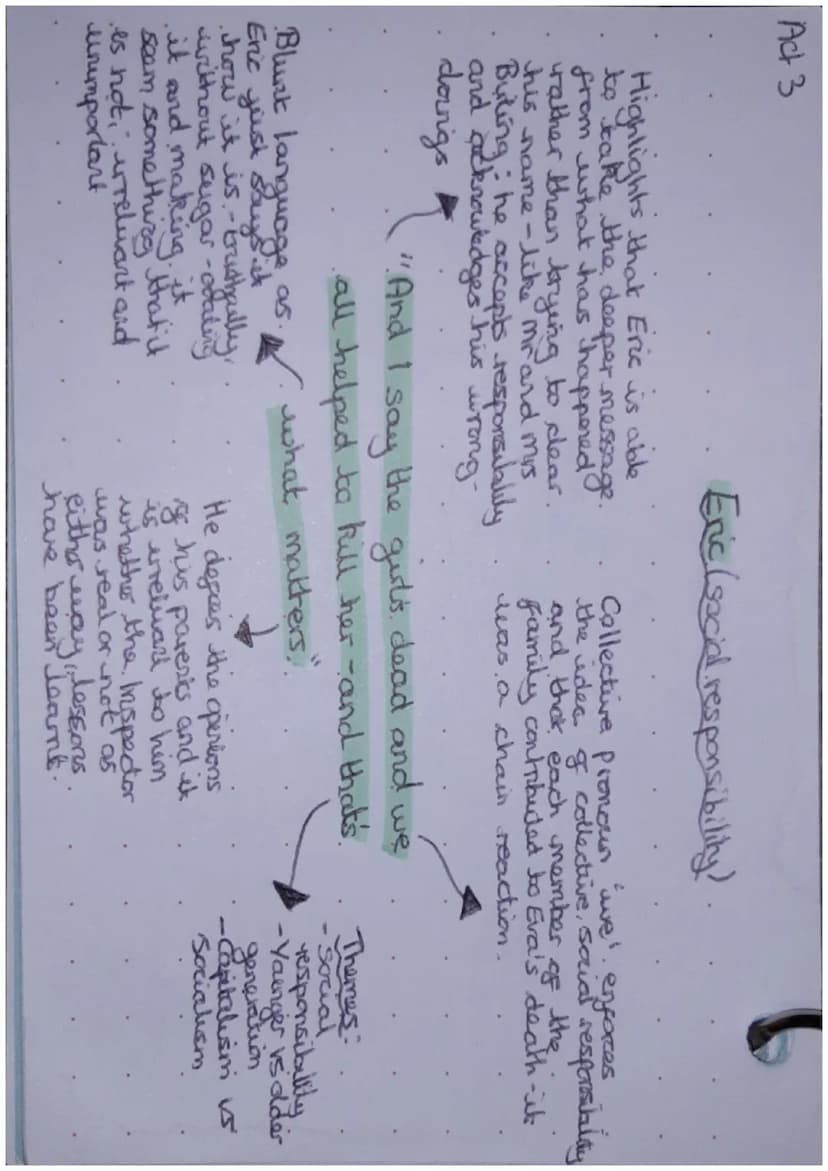 Act 3
Eric (social responsibility)
Highlights that Eric is able
to take the deeper message
from what has happened
rather than trying to clear
his name - like mr and mrs
Byling; he accepts responsibility
and acknowledges his wrong-
doings
Collective pronoun 'we' enforces
the idea of collective, social responsibility
and that each member of the
family contributed to Eva's death - it
was a chain reaction.
"And I say the girls dead and we
all helped to kill her - and that's
what matters."
Blunt language as
Eric just says it
how it is - truthfully,
without sugar-coating
it and making it
seam something that it
is not; irrelevant and
unimportant
He defies the opinions
of his parents and it
is irrelevant to him
whether the Inspector
was real or not as
either way, lessons
have been learnt.
Themes:
- Social
responsibility
- Younger vs older
generation
- Capitalism vs
socialism